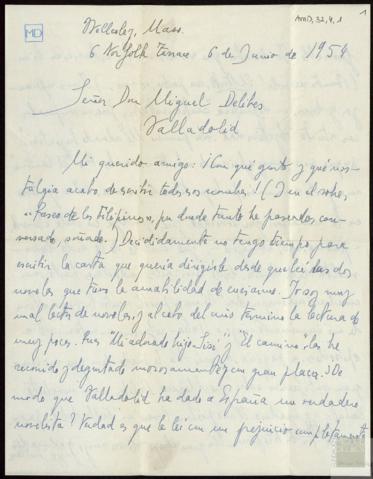 AMD, 32, 4, 1
1
MD
Wellesley, Mass.
6 Norfolk Terrace 6 de Junio de 1954
Señor Don Miguel Delibes
Valladolid
Mi querido amigo: ¡Con qué gusto y qué nos-
talgia acabo de escribir todos esos nombres! (Y en el sobre,
"Paseo de los Filipinos", por donde tanto he paseado, con-
versado, soñado.) Decididamente no tengo tiempo para
escribir la carta que quería dirigirle desde que leí las dos
novelas que tuvo la amabilidad de enviarnos. Yo soy muy
mal lector de novelas, y al cabo del año termino la lectura de
muy pocas. Pues "Mi idolatrado hijo Sisí" y "El camino" las he
recorrido y degustado morosamente y con gran placer. ¿De
modo que Valladolid ha dado a España un verdadero
novelista? Verdad es que le leí con un prejuicio completamente